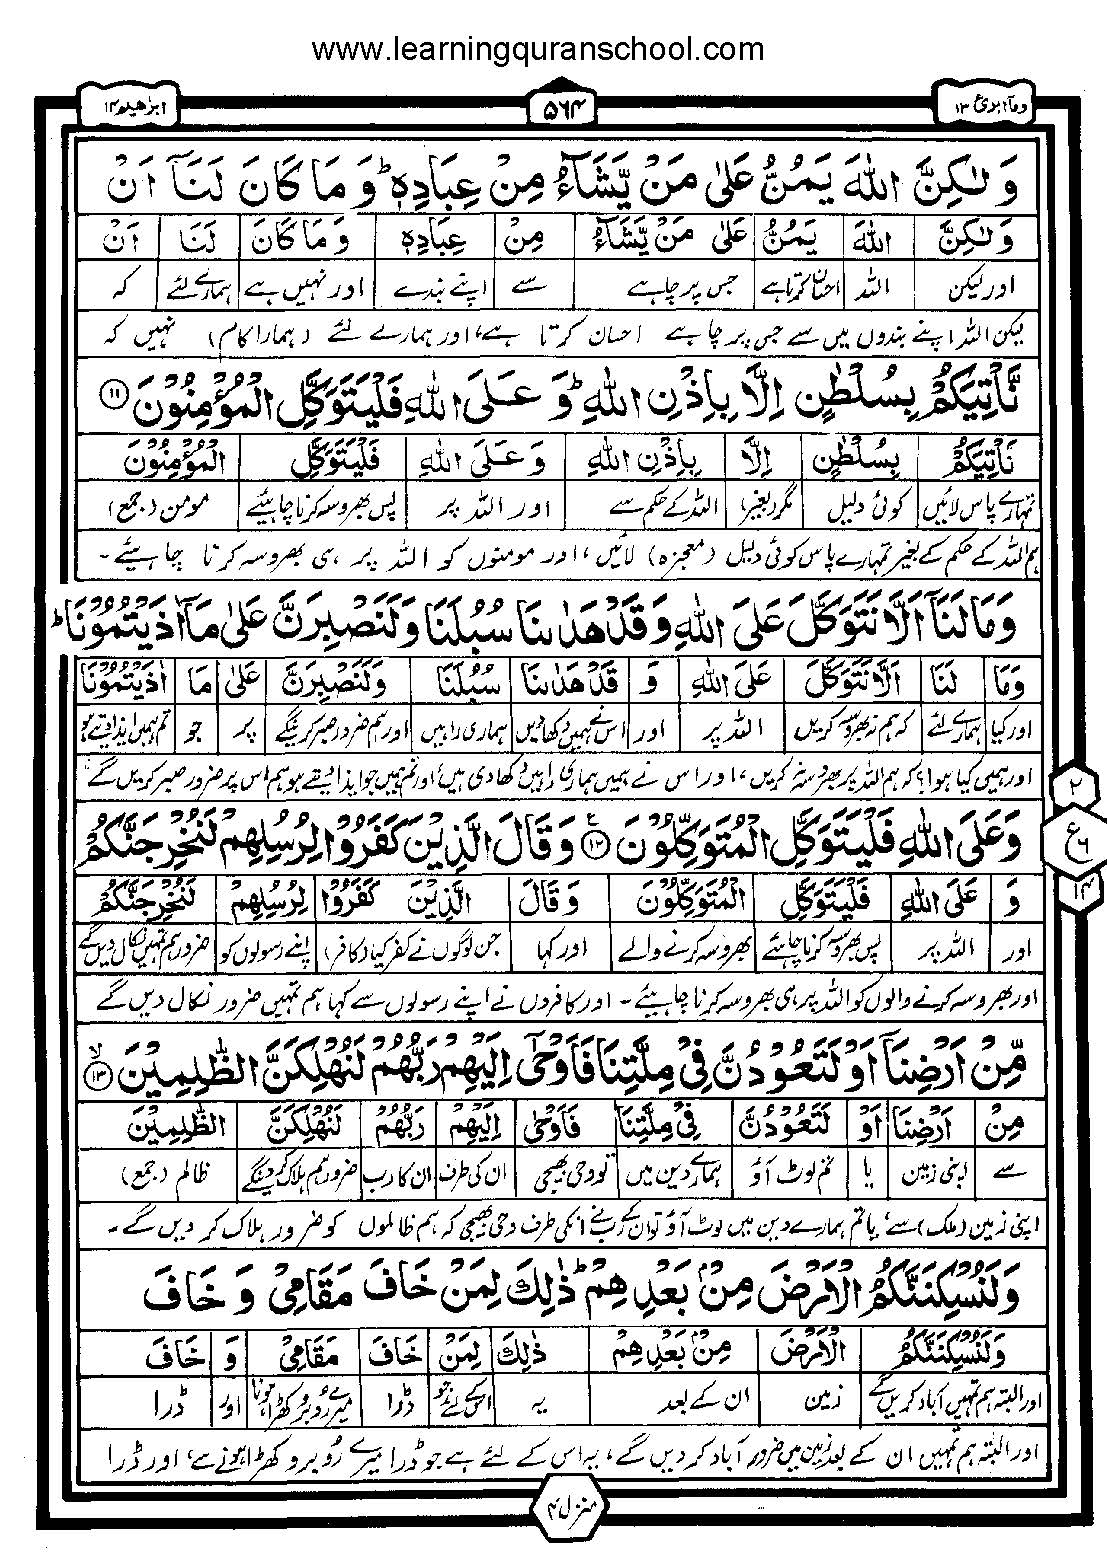 www.learningquranschool.com
ابرٰهيم ۱۴
۵۶۴
ومآ ابرئ ۱۳
وَلٰكِنَّ اللّٰهَ يَمُنُّ عَلٰى مَنْ يَّشَآءُ مِنْ عِبَادِهٖ ؕ وَمَا كَانَ لَنَآ اَنْ
وَلٰكِنَّ اللّٰهَ يَمُنُّ عَلٰى مَنْ يَّشَآءُ مِنْ عِبَادِهٖ وَمَا كَانَ لَنَا اَنْ
اور لیکن اللہ احسان کرتا ہے جس پر چاہے سے اپنے بندے اور نہیں ہے ہمارے لئے کہ
لیکن اللہ اپنے بندوں میں سے جس پر چاہے احسان کرتا ہے، اور ہمارے لئے (ہمارا کام) نہیں کہ
نَّاْتِيَكُمْ بِسُلْطٰنٍ اِلَّا بِاِذْنِ اللّٰهِ ؕ وَ عَلَى اللّٰهِ فَلْيَتَوَكَّلِ الْمُؤْمِنُوْنَ ۱۱
نَاْتِيَكُمْ بِسُلْطٰنٍ اِلَّا بِاِذْنِ اللّٰهِ وَعَلَى اللّٰهِ فَلْيَتَوَكَّلِ الْمُؤْمِنُوْنَ
تمہارے پاس لائیں کوئی دلیل مگر (بغیر) اللہ کے حکم سے اور اللہ پر پس بھروسہ کرنا چاہیئے مومن (جمع)
ہم اللہ کے حکم کے بغیر تمہارے پاس کوئی دلیل (معجزہ) لائیں، اور مومنوں کو اللہ پر ہی بھروسہ کرنا چاہیئے۔
وَمَا لَنَآ اَلَّا نَتَوَكَّلَ عَلَى اللّٰهِ وَقَدْ هَدٰىنَا سُبُلَنَا وَلَنَصْبِرَنَّ عَلٰى مَآ اٰذَيْتُمُوْنَا ؕ
وَمَا لَنَا اَلَّا نَتَوَكَّلَ عَلَى اللّٰهِ وَ قَدْ هَدٰىنَا سُبُلَنَا وَلَنَصْبِرَنَّ عَلٰى مَا اٰذَيْتُمُوْنَا
اور کیا ہمارے لئے کہ ہم نہ بھروسہ کریں اللہ پر اور اس نے ہمیں دکھا دیں ہماری راہیں اور ہم ضرور صبر کرینگے پر جو تم ہمیں ایذا دیتے ہو
اور ہمیں کیا ہوا؟ کہ ہم اللہ پر بھروسہ نہ کریں، اور اس نے ہمیں ہماری راہیں دکھا دی ہیں، اور تم ہمیں جو ایذا دیتے ہو ہم اس پر ضرور صبر کریں گے
۲
ع
۶
۱۴
وَعَلَى اللّٰهِ فَلْيَتَوَكَّلِ الْمُتَوَكِّلُوْنَ ۱۲ وَقَالَ الَّذِيْنَ كَفَرُوْا لِرُسُلِهِمْ لَنُخْرِجَنَّكُمْ
وَ عَلَى اللّٰهِ فَلْيَتَوَكَّلِ الْمُتَوَكِّلُوْنَ وَقَالَ الَّذِيْنَ كَفَرُوْا لِرُسُلِهِمْ لَنُخْرِجَنَّكُمْ
اور اللہ پر پس بھروسہ کرنا چاہیئے بھروسہ کرنے والے اور کہا جن لوگوں نے کفر کیا (کافر) اپنے رسولوں کو ضرور ہم تمہیں نکال دیں گے
اور بھروسہ کرنے والوں کو اللہ پر ہی بھروسہ کرنا چاہیئے۔ اور کافروں نے اپنے رسولوں سے کہا ہم تمہیں ضرور نکال دیں گے
مِّنْ اَرْضِنَآ اَوْ لَتَعُوْدُنَّ فِيْ مِلَّتِنَا فَاَوْحٰٓى اِلَيْهِمْ رَبُّهُمْ لَنُهْلِكَنَّ الظّٰلِمِيْنَ ۱۳
مِنْ اَرْضِنَا اَوْ لَتَعُوْدُنَّ فِيْ مِلَّتِنَا فَاَوْحٰى اِلَيْهِمْ رَبُّهُمْ لَنُهْلِكَنَّ الظّٰلِمِيْنَ
سے اپنی زمین یا تم لوٹ آؤ ہمارے دین میں تو وحی بھیجی ان کی طرف ان کا رب ضرور ہم ہلاک کردینگے ظالم (جمع)
اپنی زمین (ملک) سے، یا تم ہمارے دین میں لوٹ آؤ تو ان کے رب نے انکی طرف وحی بھیجی کہ ہم ظالموں کو ضرور ہلاک کر دیں گے۔
وَلَنُسْكِنَنَّكُمُ الْاَرْضَ مِنْۢ بَعْدِهِمْ ؕ ذٰلِكَ لِمَنْ خَافَ مَقَامِيْ وَ خَافَ
وَلَنُسْكِنَنَّكُمُ الْاَرْضَ مِنْۢ بَعْدِهِمْ ذٰلِكَ لِمَنْ خَافَ مَقَامِيْ وَ خَافَ
اور البتہ ہم تمہیں آباد کریں گے زمین ان کے بعد یہ اس کے لئے جو ڈرا میرے روبرو کھڑا ہونا اور ڈرا
اور البتہ ہم تمہیں ان کے بعد زمین میں ضرور آباد کر دیں گے، یہ اس کے لئے ہے جو ڈرا میرے رُوبرو کھڑا ہونے سے، اور ڈرا
منزل ۳